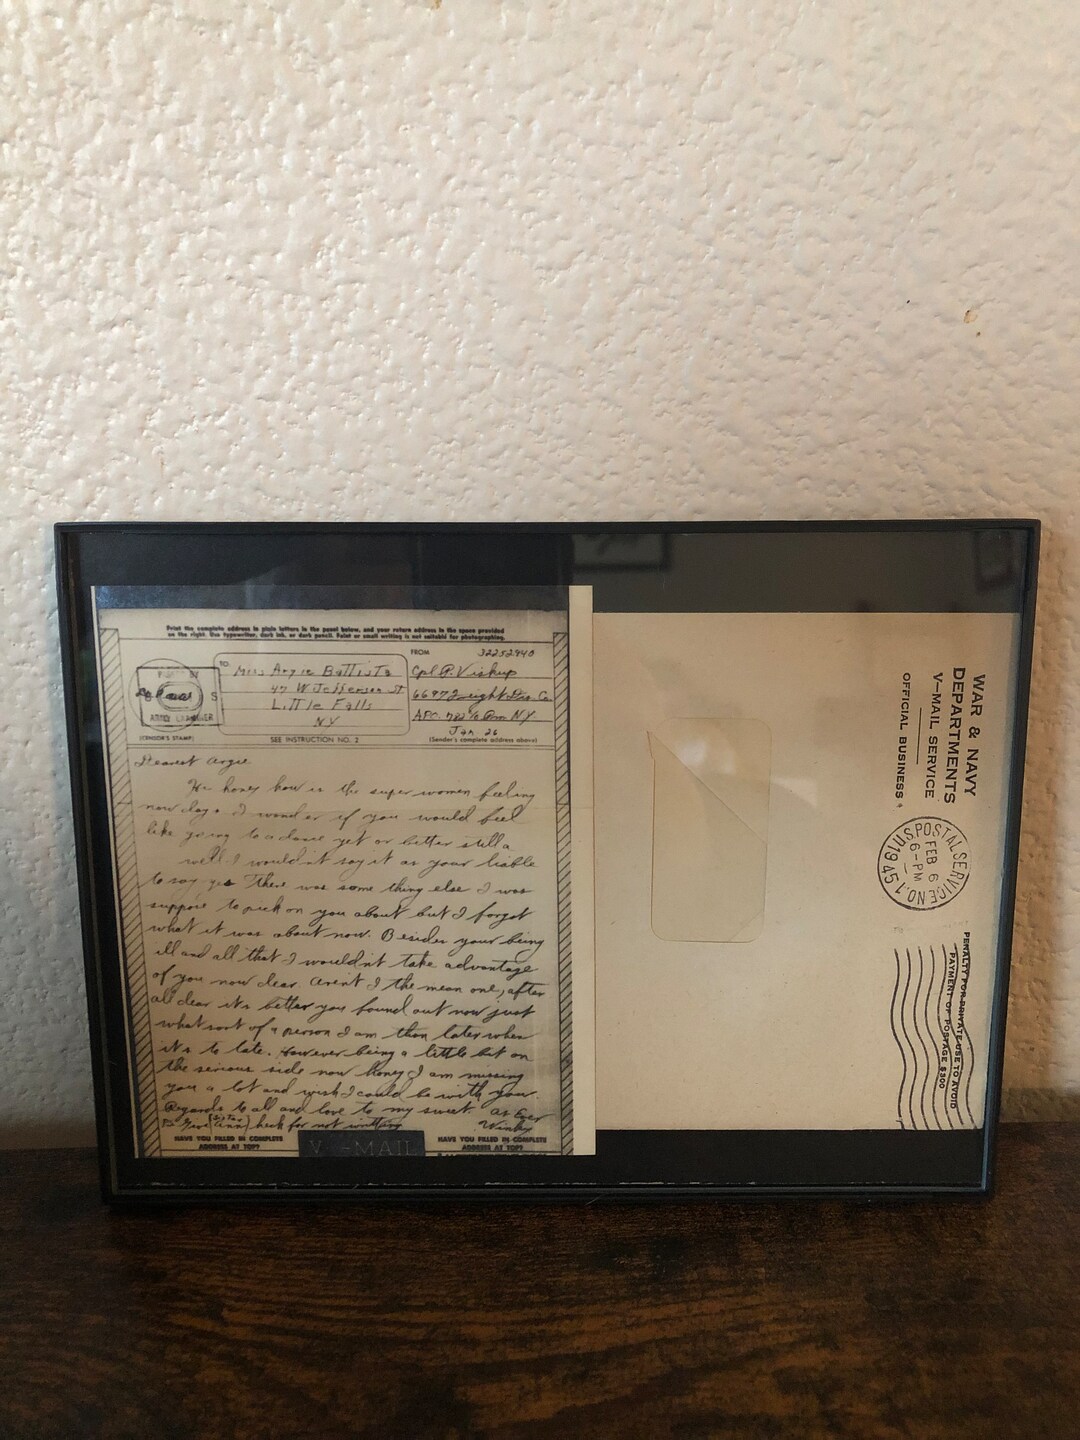 Print the complete address in plain letters in the panel below, and your return address in the space provided
on the right. Use typewriter, dark ink, or dark pencil. Faint or small writing is not suitable for photographing.
FROM 32252940
TO: Miss Argie Battista
47 W Jefferson St
Little Falls
NY
Cpl P. Viskup
APO 782 NY
Jan 26
PASSED BY
S
ARMY EXAMINER
(CENSOR'S STAMP)
SEE INSTRUCTION NO. 2
(Sender's complete address above)
Dearest Argie
honey how is the super women feeling
now days. I wonder if you would feel
like going to a dance yet or better still a
well I wouldn't say it as your liable
to say yes There was some thing else I was
suppose to pick on you about but I forgot
what it was about now. Besides your being
ill and all that I wouldn't take advantage
of you now dear. Aren't I the mean one, after
all dear its better you found out now just
what sort of a person I am than later when
it's to late. However being a little bit on
the serious side now honey I am missing
you a lot and wish I could be with you.
Regards to all and love to my sweet. As Ever
Winky
P.S. Give heck for not writting
HAVE YOU FILLED IN COMPLETE
ADDRESS AT TOP?
V-MAIL
HAVE YOU FILLED IN COMPLETE
ADDRESS AT TOP?
WAR & NAVY
DEPARTMENTS
V-MAIL SERVICE
OFFICIAL BUSINESS
U.S. POSTAL SERVICE NO. 1
FEB 6
6-PM
1945
PENALTY FOR PRIVATE USE TO AVOID
PAYMENT OF POSTAGE $300